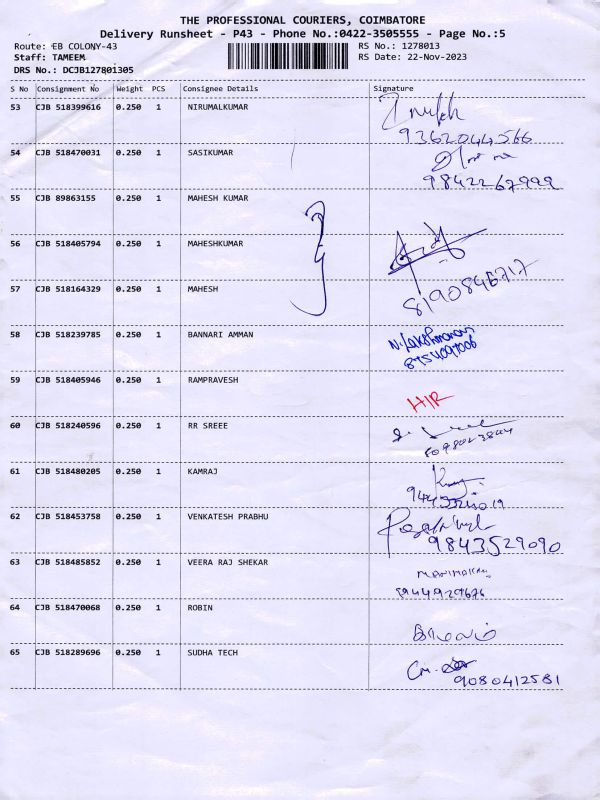 THE PROFESSIONAL COURIERS, COIMBATORE
Delivery Runsheet - P43 - Phone No.:0422-3505555 - Page No.:5
Route: EB COLONY-43 RS No.: 1278013
Staff: TAMEEM RS Date: 22-Nov-2023
DRS No.: DCJB127801305
S No Consignment No Weight PCS Consignee Details Signature
53 CJB 518399616 0.250 1 NIRUMALKUMAR
9362044566
54 CJB 518470031 0.250 1 SASIKUMAR
9842267999
55 CJB 89863155 0.250 1 MAHESH KUMAR
56 CJB 518405794 0.250 1 MAHESHKUMAR
57 CJB 518164329 0.250 1 MAHESH
8190846717
58 CJB 518239785 0.250 1 BANNARI AMMAN
N. Lakshmanan
8754097006
59 CJB 518405946 0.250 1 RAMPRAVESH
H/R
60 CJB 518240596 0.250 1 RR SREEE
61 CJB 518480205 0.250 1 KAMRAJ
62 CJB 518453758 0.250 1 VENKATESH PRABHU
9843529090
63 CJB 518485852 0.250 1 VEERA RAJ SHEKAR
64 CJB 518470068 0.250 1 ROBIN
65 CJB 518289696 0.250 1 SUDHA TECH
9080412581